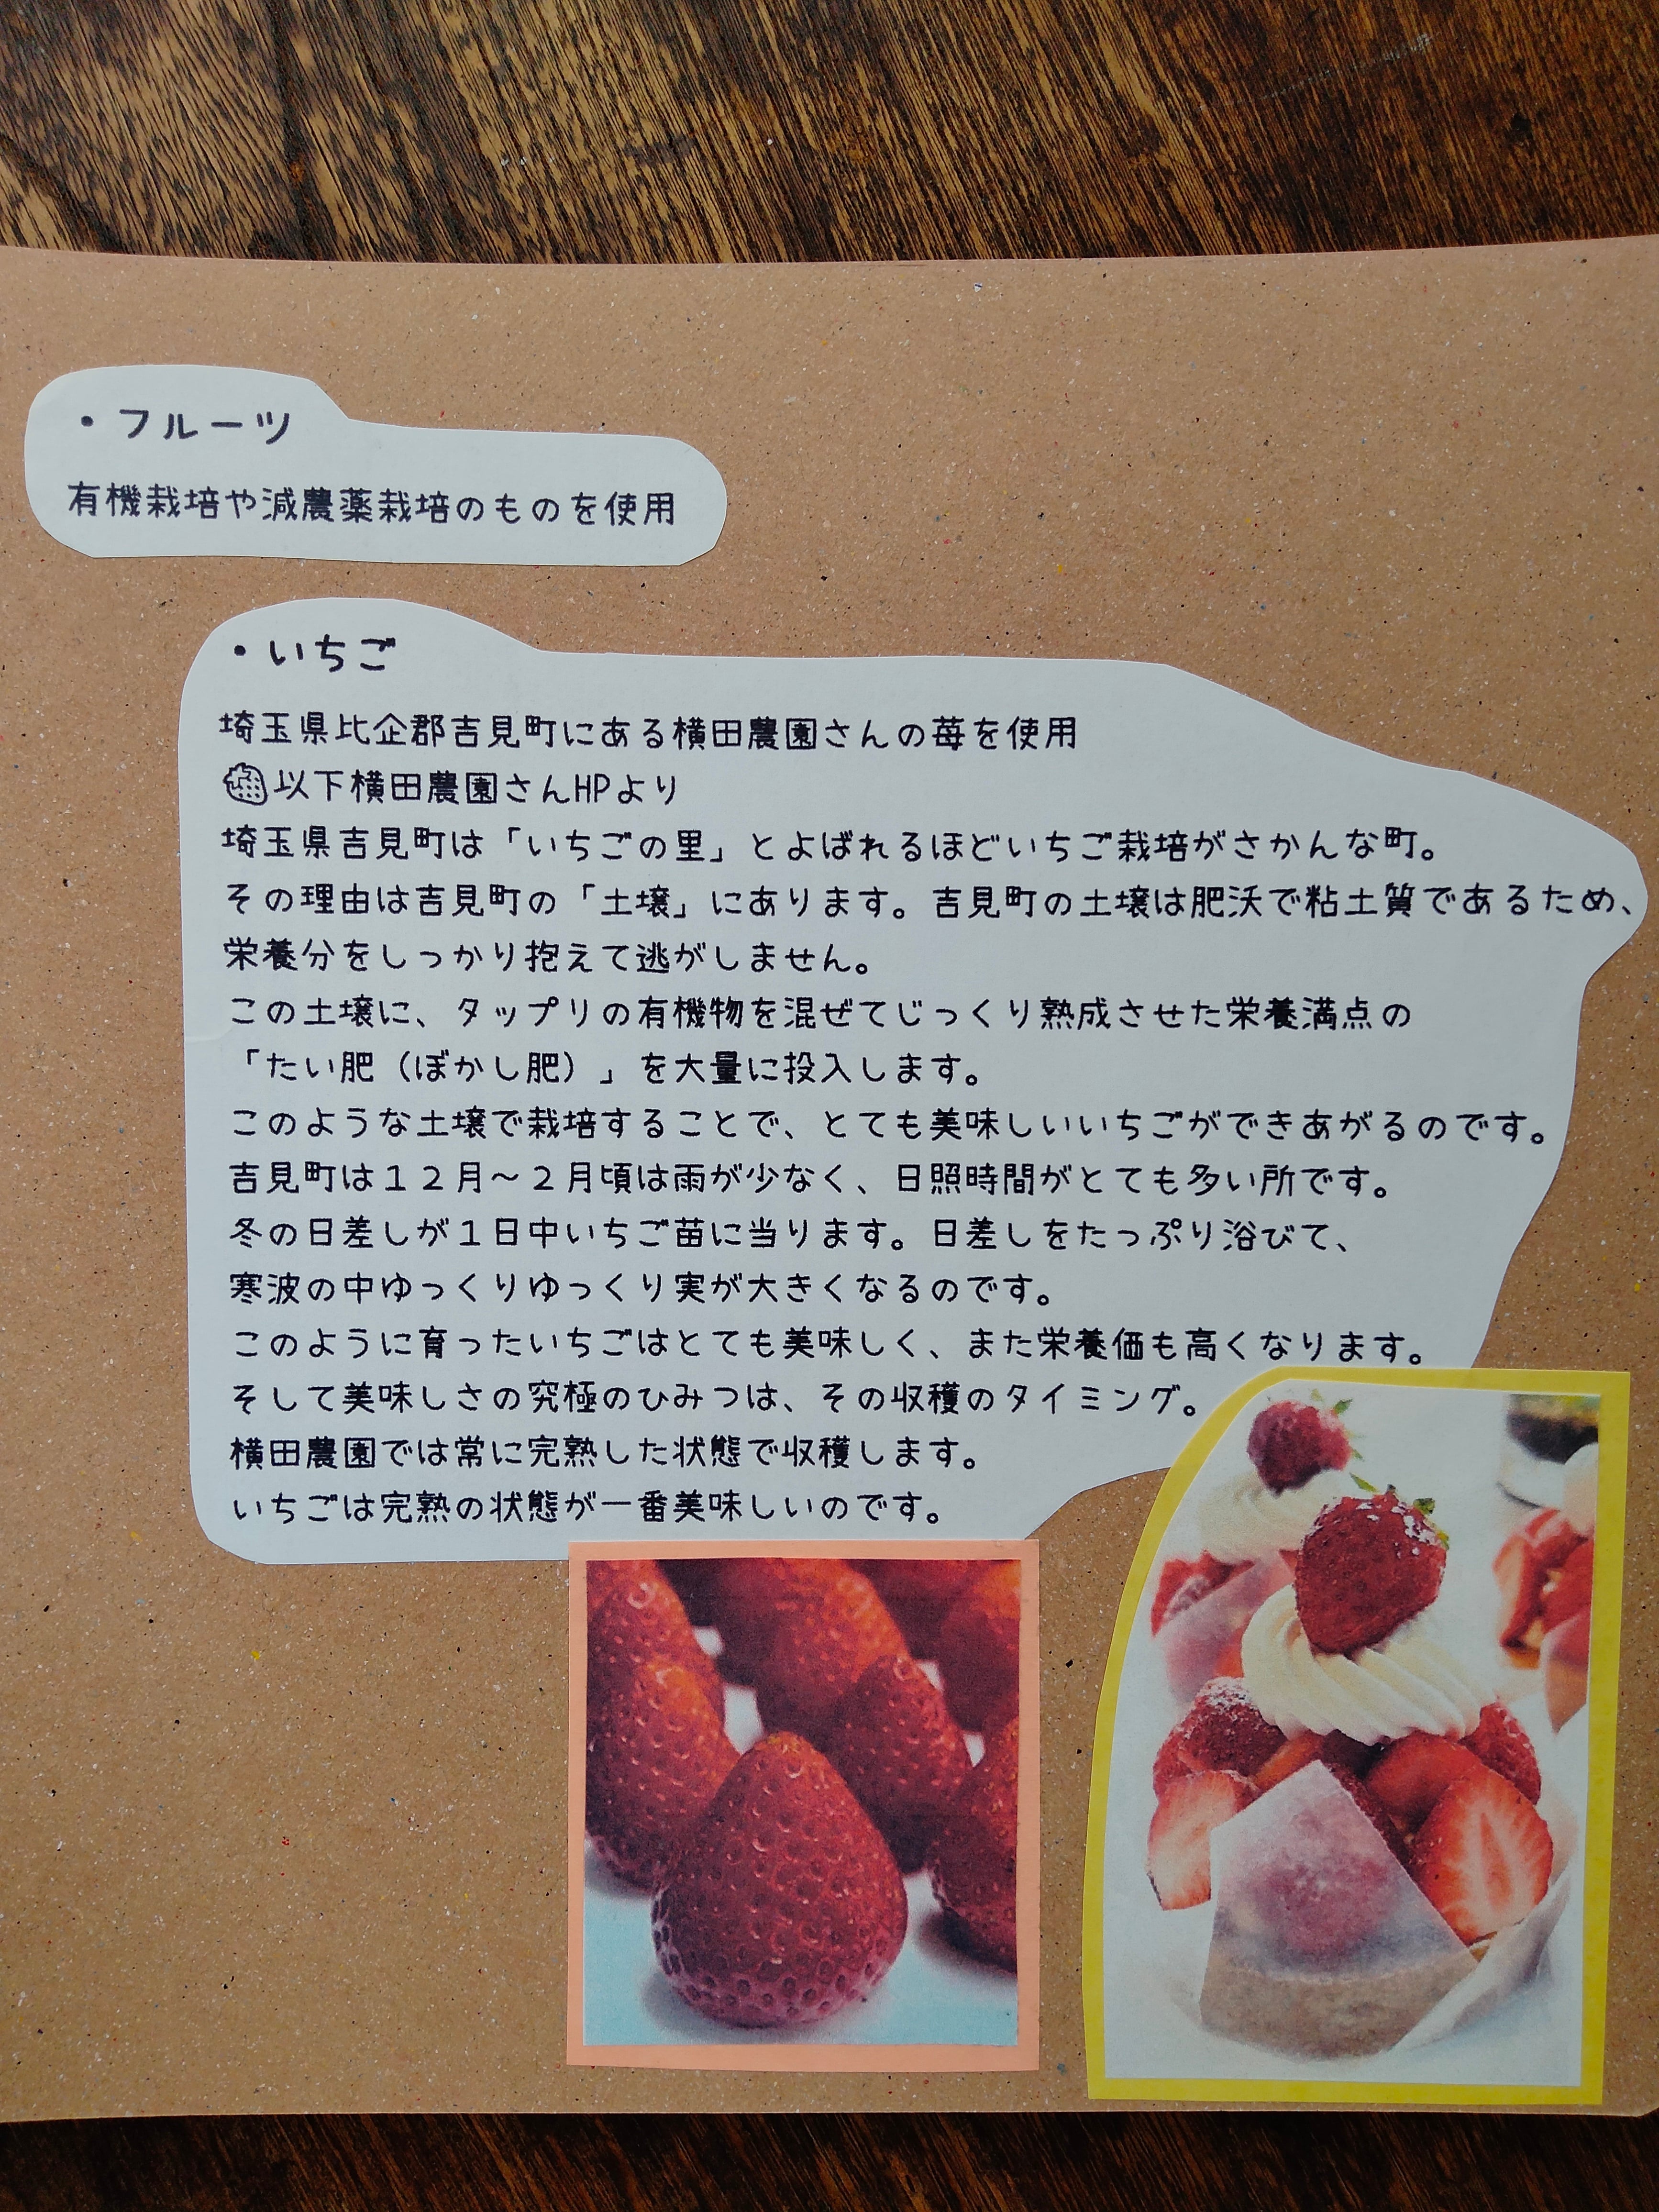 ・フルーツ
有機栽培や減農薬栽培のものを使用
・いちご
埼玉県比企郡吉見町にある横田農園さんの苺を使用
以下横田農園さんHPより
埼玉県吉見町は「いちごの里」とよばれるほどいちご栽培がさかんな町。
その理由は吉見町の「土壌」にあります。吉見町の土壌は肥沃で粘土質であるため、
栄養分をしっかり抱えて逃がしません。
この土壌に、タップリの有機物を混ぜてじっくり熟成させた栄養満点の
「たい肥（ぼかし肥）」を大量に投入します。
このような土壌で栽培することで、とても美味しいいちごができあがるのです。
吉見町は１２月～２月頃は雨が少なく、日照時間がとても多い所です。
冬の日差しが１日中いちご苗に当ります。日差しをたっぷり浴びて、
寒波の中ゆっくりゆっくり実が大きくなるのです。
このように育ったいちごはとても美味しく、また栄養価も高くなります。
そして美味しさの究極のひみつは、その収穫のタイミング。
横田農園では常に完熟した状態で収穫します。
いちごは完熟の状態が一番美味しいのです。